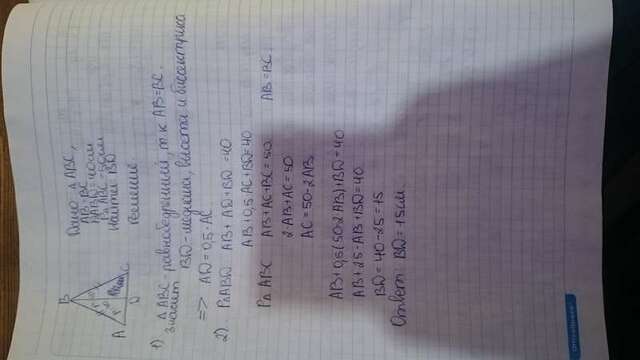 B
A
D
C
Дано: △ABC,
AB=BC
P△ABD=40см
P△ABC=50см
Найти: BD
Решение.
1) △ABC-равнобедренный, т.к AB=BC.
значит BD-медиана, высота и биссектриса
=> AD=0,5·AC.
2). P△ABD AB+AD+BD=40
AB+0,5·AC+BD=40
P△ABC AB+AC+BC=50. AB=BC,
2·AB+AC=50
AC=50-2AB.
AB+0,5(50-2AB)+BD=40
AB+25-AB+BD=40.
BD=40-25=15
Ответ: BD=15см.